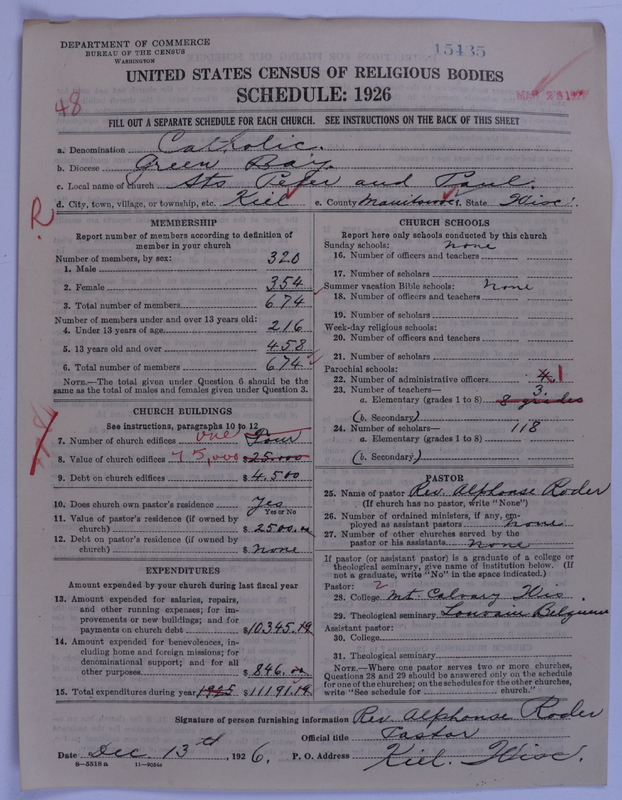 DEPARTMENT OF COMMERCE
BUREAU OF THE CENSUS
WASHINGTON
15435
UNITED STATES CENSUS OF RELIGIOUS BODIES
SCHEDULE: 1926
48
FILL OUT A SEPARATE SCHEDULE FOR EACH CHURCH. SEE INSTRUCTIONS ON THE BACK OF THIS SHEET
a. Denomination Catholic.
b. Diocese Green Bay.
c. Local name of church Sts Peter and Paul.
d. City, town, village, or township, etc. Kiel e. County Manitowoc f. State Wisc.
R
MEMBERSHIP
Report number of members according to definition of
member in your church
Number of members, by sex:
1. Male 320
2. Female 354
3. Total number of members 674
Number of members under and over 13 years old:
4. Under 13 years of age 216
5. 13 years old and over 458
6. Total number of members 674
NOTE.—The total given under Question 6 should be the
same as the total of males and females given under Question 3.
CHURCH BUILDINGS
See instructions, paragraphs 10 to 12
7. Number of church edifices one Four
8. Value of church edifices 75,000 $25.000
9. Debt on church edifices $4.500
10. Does church own pastor's residence Yes
Yes or No
11. Value of pastor's residence (if owned by
church) $2500.00
12. Debt on pastor's residence (if owned by
church) $None
EXPENDITURES
Amount expended by your church during last fiscal year
13. Amount expended for salaries, repairs,
and other running expenses; for im-
provements or new buildings; and for
payments on church debt $10345.19
14. Amount expended for benevolences, in-
cluding home and foreign missions; for
denominational support; and for all
other purposes $846.00
15. Total expenditures during year 1925 $11191.19
CHURCH SCHOOLS
Report here only schools conducted by this church
Sunday schools: None
16. Number of officers and teachers
17. Number of scholars
Summer vacation Bible schools: None
18. Number of officers and teachers
19. Number of scholars
Week-day religious schools:
20. Number of officers and teachers
21. Number of scholars
Parochial schools:
22. Number of administrative officers 4. 1
23. Number of teachers— 3.
a. Elementary (grades 1 to 8) 8 grades
(b. Secondary)
24. Number of scholars— 118
a. Elementary (grades 1 to 8)
(b. Secondary)
PASTOR
25. Name of pastor Rev. Alphonse Roder
(If church has no pastor, write "None")
26. Number of ordained ministers, if any, em-
ployed as assistant pastors none
27. Number of other churches served by the
pastor or his assistants None
If pastor (or assistant pastor) is a graduate of a college or
theological seminary, give name of institution below. (If
not a graduate, write "No" in the space indicated.)
Pastor: 2
28. College Mt Calvary Wis
29. Theological seminary Louvain Belgium
Assistant pastor:
30. College
31. Theological seminary
NOTE.—Where one pastor serves two or more churches,
Questions 28 and 29 should be answered only on the schedule
for one of the churches; on the schedules for the other churches,
write "See schedule for church."
Signature of person furnishing information Rev. Alphonse Roder
Official title Pastor
Date Dec. 13th, 1926. P. O. Address Kiel. Wisc.
8—5518a 11—90544